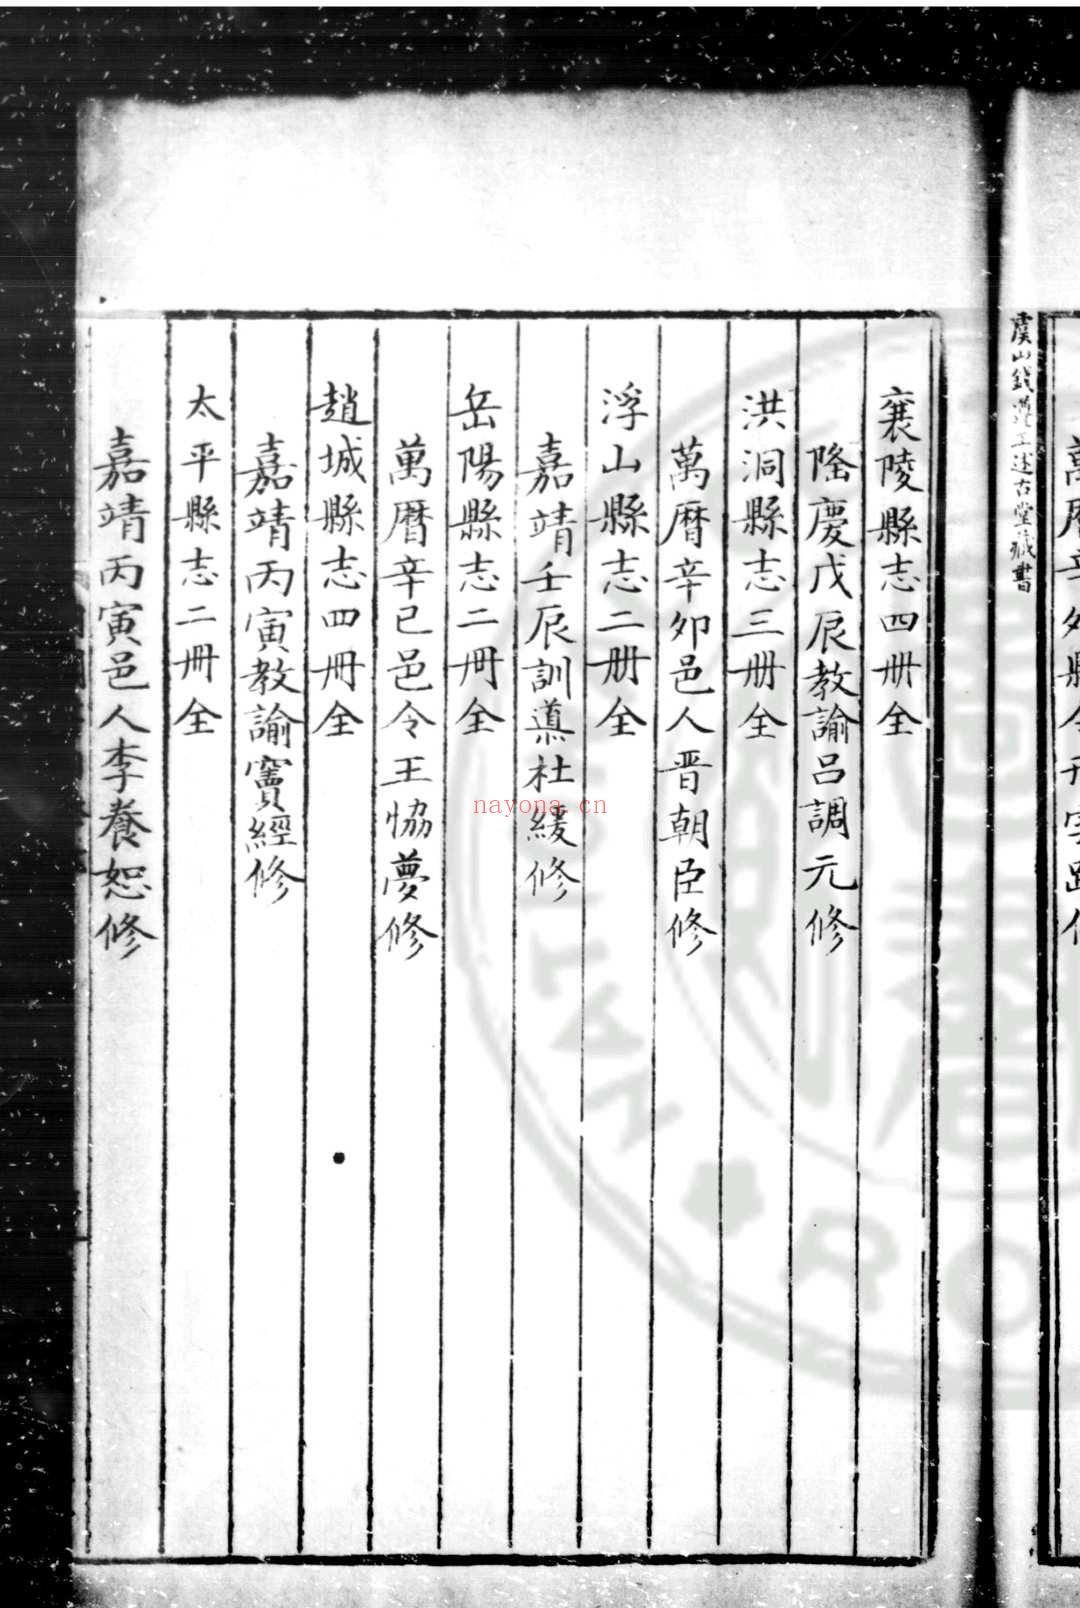 萬曆辛卯縣令
虞山錢遵王述古堂藏書
襄陵縣志四冊全
隆慶戊辰教諭呂調元修
洪洞縣志三冊全
萬曆辛卯邑人晋朝臣修
浮山縣志二册全
嘉靖壬辰訓導杜緩修
岳陽縣志二冊全
萬曆辛巳邑令王恊夢修
趙城縣志四冊全
嘉靖丙寅教諭竇經修
太平縣志二冊全
嘉靖丙寅邑人李養恕修
nayona.cn